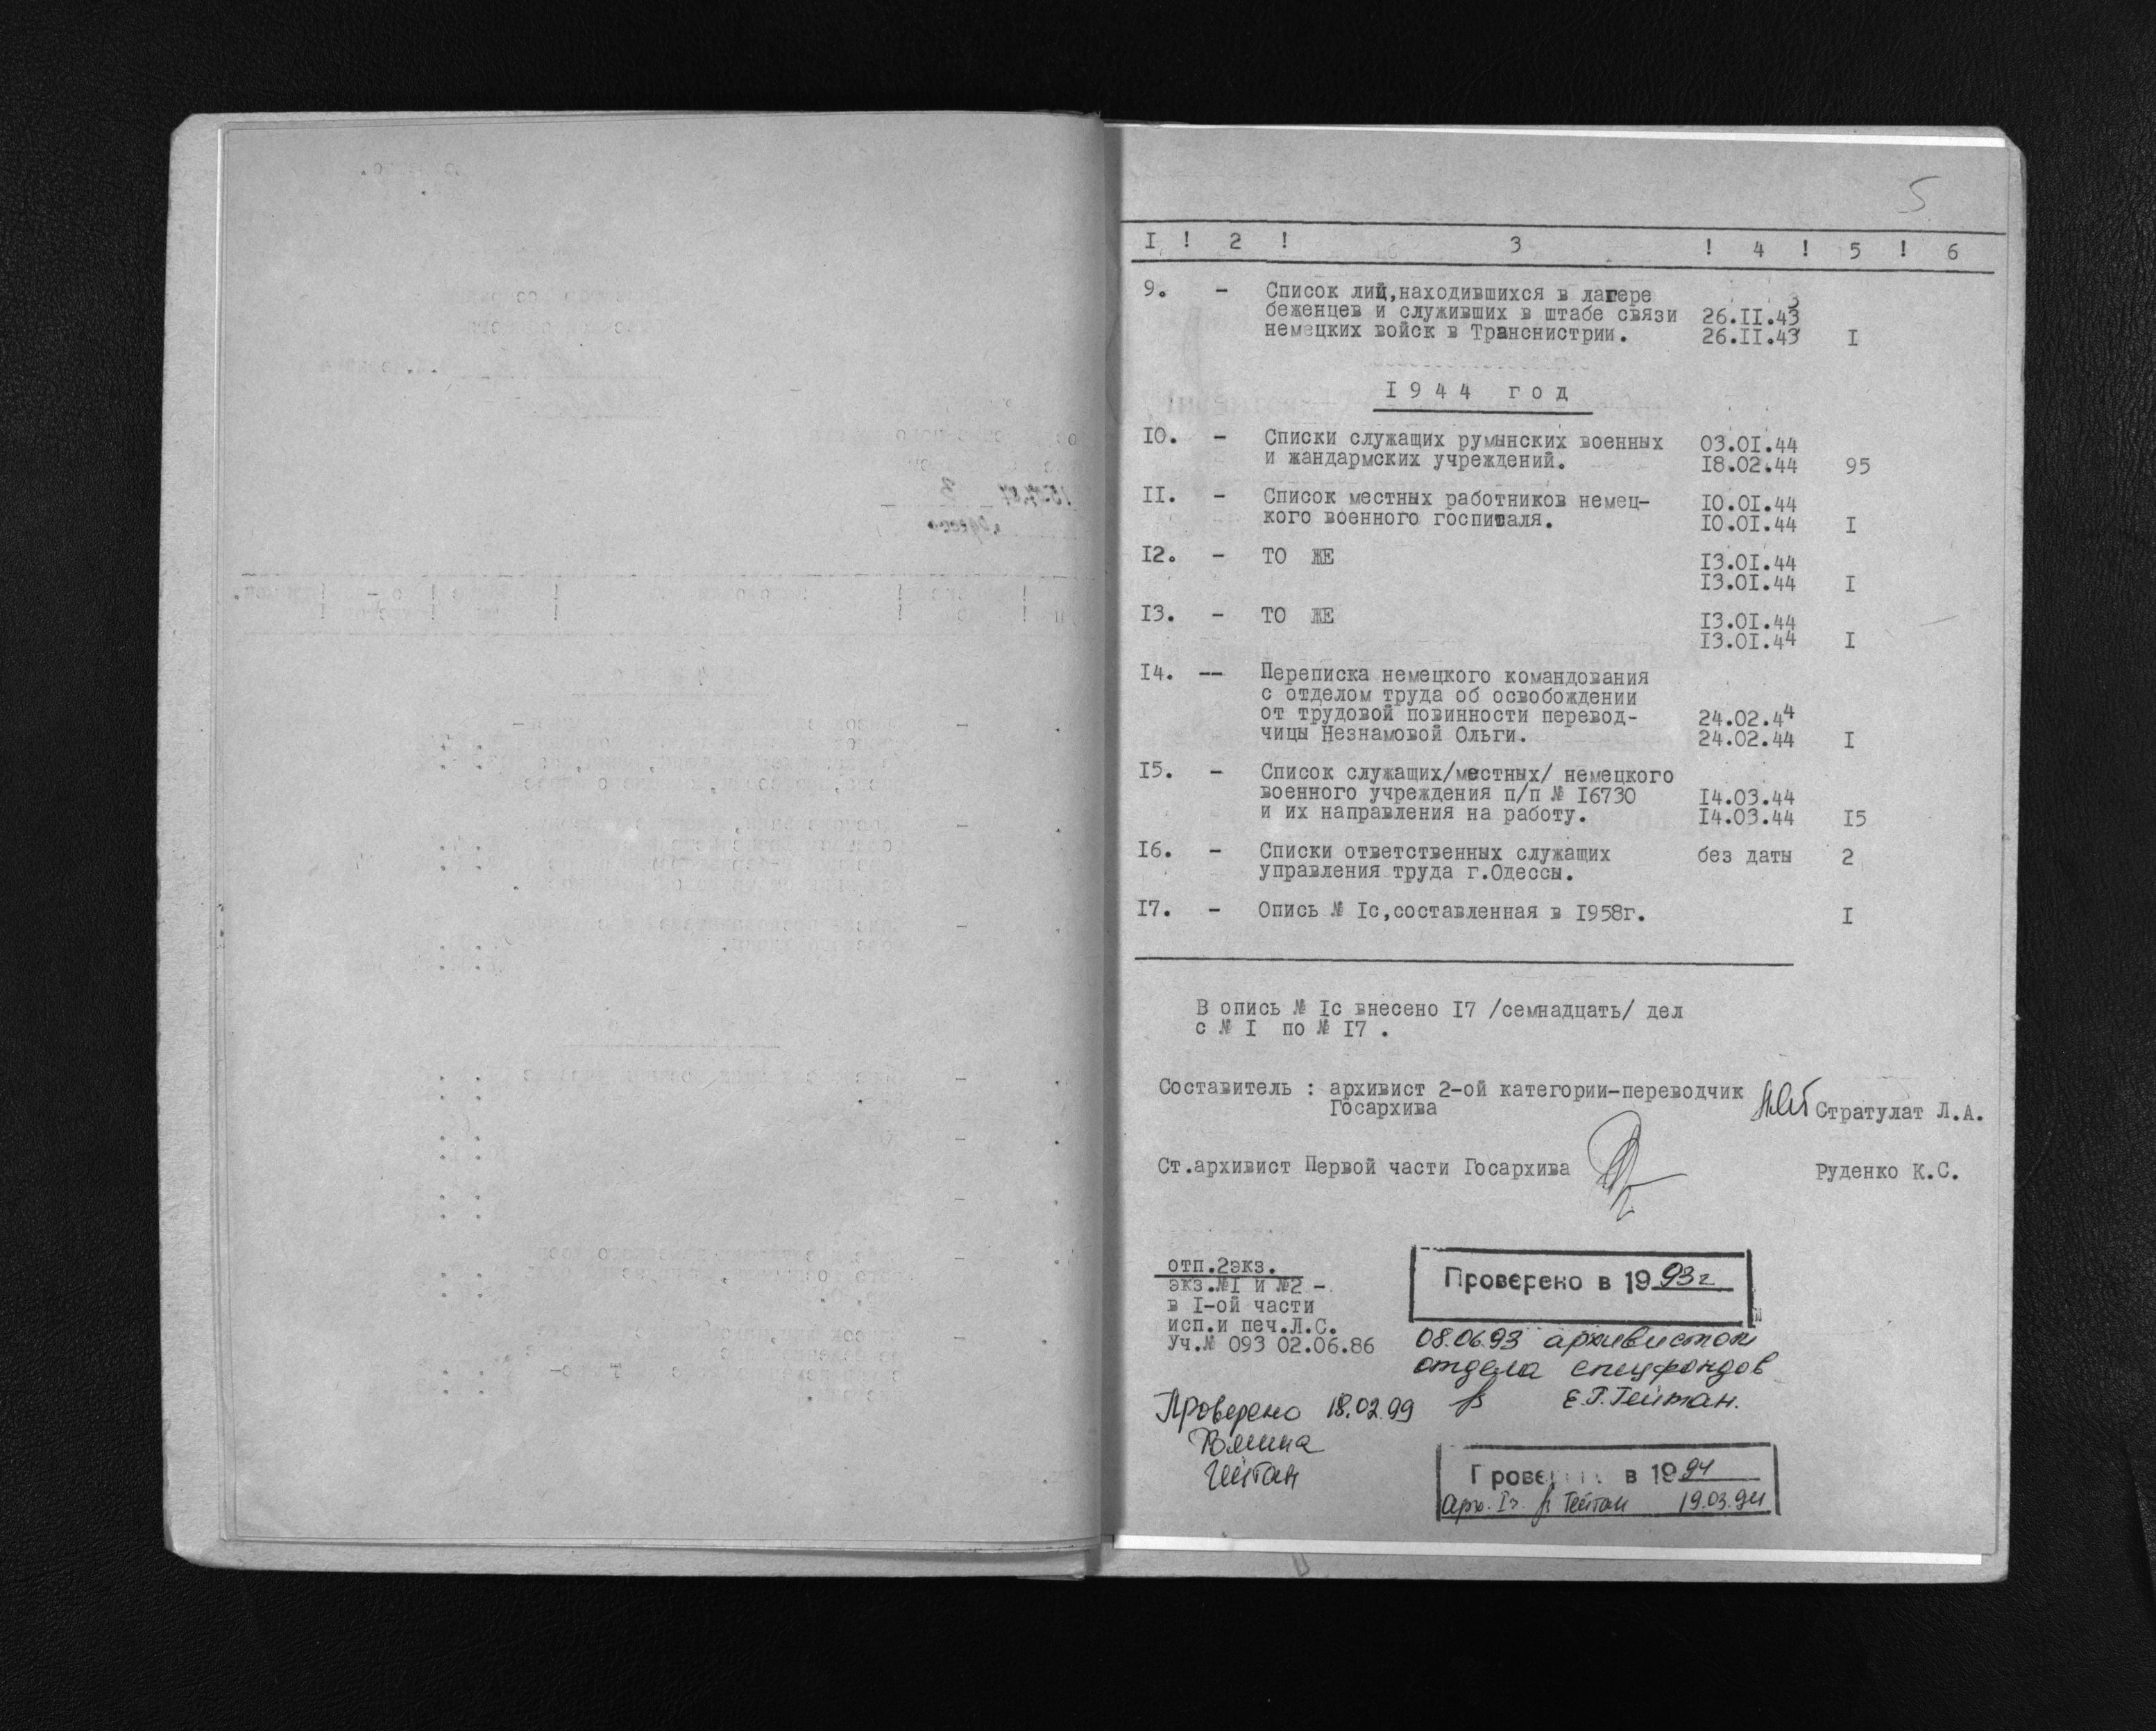 5
I ! 2 ! 3 ! 4 ! 5 ! 6
9. - Список лиц,находившихся в лагере
беженцев и служивших в штабе связи 26.II.43
немецких войск в Транснистрии. 26.II.43 I
I 9 4 4 г о д
IO. - Списки служащих румынских военных 03.OI.44
и жандармских учреждений. I8.02.44 95
II. - Список местных работников немец- IO.OI.44
кого военного госпиталя. IO.OI.44 I
I2. - ТО ЖЕ I3.OI.44
I3.OI.44 I
I3. - ТО ЖЕ I3.OI.44
I3.OI.44 I
I4. -- Переписка немецкого командования
с отделом труда об освобождении
от трудовой повинности перевод- 24.02.44
чицы Незнамовой Ольги. 24.02.44 I
I5. - Список служащих/местных/ немецкого
военного учреждения п/п № I6730 I4.03.44
и их направления на работу. I4.03.44 I5
I6. - Списки ответственных служащих без даты 2
управления труда г.Одессы.
I7. - Опись № Iс,составленная в I958г. I
В опись № Iс внесено I7 /семнадцать/ дел
с № I по № I7 .
Составитель : архивист 2-ой категории-переводчик
Госархива Стратулат Л.А.
Ст.архивист Первой части Госархива Руденко К.С.
отп.2экз.
экз.№I и №2 -
в I-ой части
исп.и печ.Л.С.
Уч.№ 093 02.06.86
Проверено в 1993г
08.06.93 архивистом
отдела спецфондов
Е.Г.Гейтан.
Проверено 18.02.99
Гейтан
в 1994
Арх. Iч. Гейтан 19.03.94